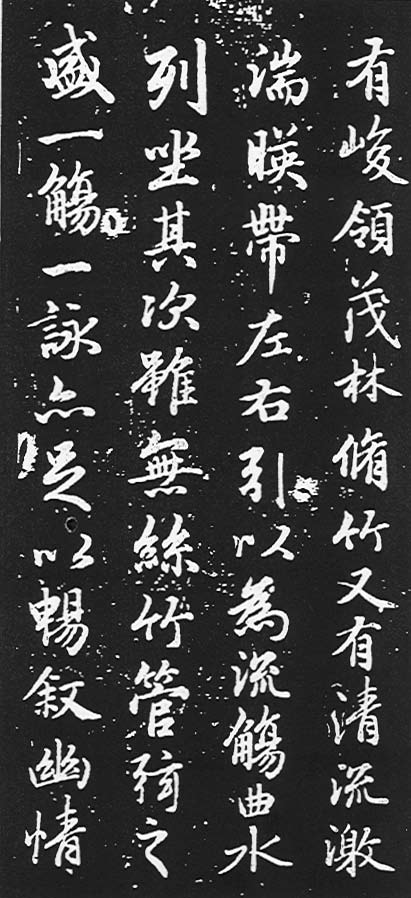 有峻領茂林脩竹又有清流激
湍暎帶左右引以為流觴曲水
列坐其次雖無絲竹管弦之
盛一觴一詠亦足以暢叙幽情